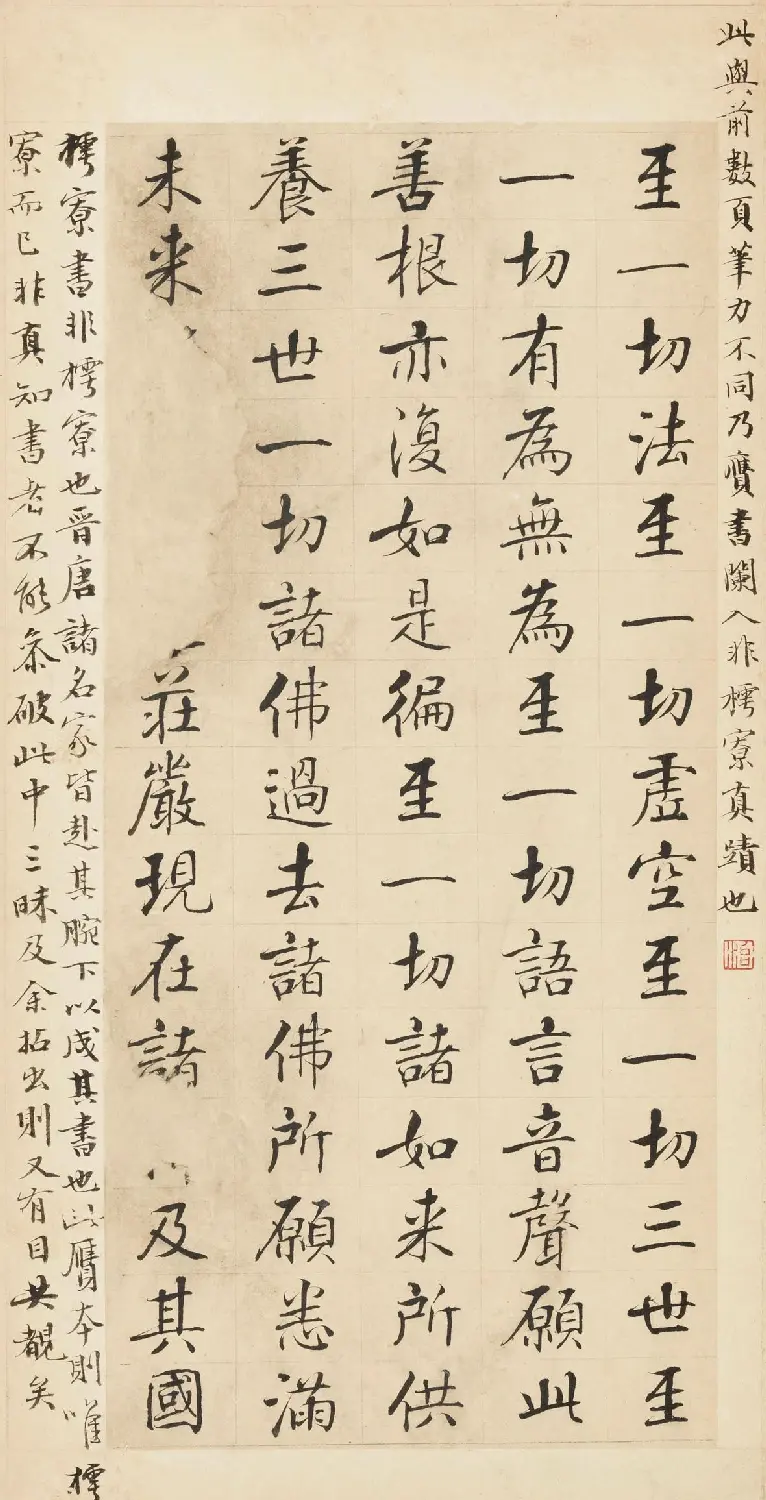 此與前數頁筆力不同乃贋書闌入非樗寮真蹟也
至一切法至一切虛空至一切三世至
一切有為無為至一切語言音聲願此
善根亦復如是徧至一切諸如来所供
養三世一切諸佛過去諸佛所願悉滿
未来莊嚴現在諸及其國
樗寮書非樗寮也晉唐諸名家皆赴其腕下以成其書也此贋本則唯樗
寮而已非真知書者不能叅破此中三昧及余拈出則又有目共覩矣